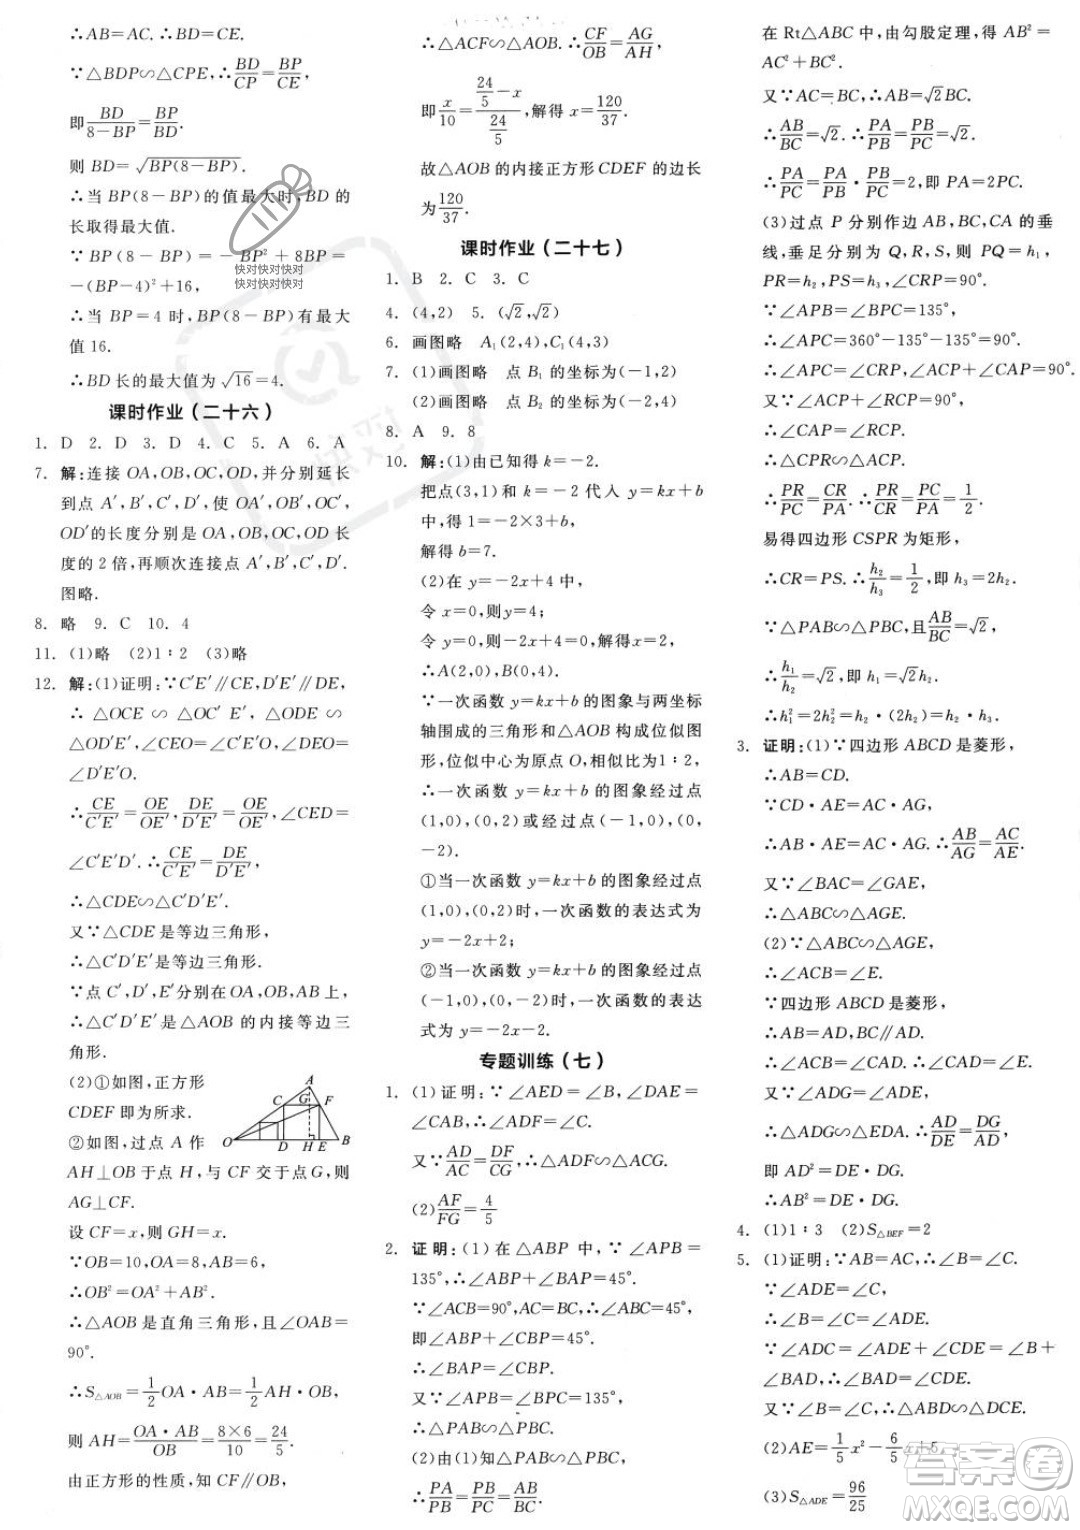 ∴AB=AC. ∴BD=CE.
∵△BDP∽△CPE, ∴BD/CP=BP/CE,
即BD/(8-BP)=BP/BD.
则 BD=√(BP(8-BP)).
∴当 BP(8-BP)的值最大时,BD 的
长取得最大值.
∵BP(8-BP)=-BP²+8BP=
-(BP-4)²+16,
∴当 BP=4 时,BP(8-BP)有最大
值 16.
∴BD 长的最大值为√16=4.
课时作业(二十六)
1. D 2. D 3. D 4. C 5. A 6. A
7. 解:连接 OA,OB,OC,OD,并分别延长
到点 A′,B′,C′,D′,使 OA′,OB′,OC′,
OD′的长度分别是 OA,OB,OC,OD 长
度的 2 倍,再顺次连接点 A′,B′,C′,D′.
图略.
8. 略 9. C 10. 4
11. (1)略 (2)1∶2 (3)略
12. 解:(1)证明:∵C′E′∥CE,D′E′∥DE,
∴△OCE∽△OC′E′,△ODE∽
△OD′E′,∠CEO=∠C′E′O,∠DEO=
∠D′E′O.
∴CE/C′E′=OE/OE′,DE/D′E′=OE/OE′,∠CED=
∠C′E′D′. ∴CE/C′E′=DE/D′E′.
∴△CDE∽△C′D′E′.
又∵△CDE 是等边三角形,
∴△C′D′E′是等边三角形.
∵点 C′,D′,E′分别在 OA,OB,AB 上,
∴△C′D′E′是△AOB 的内接等边三
角形.
(2)①如图,正方形
CDEF 即为所求.
②如图,过点 A 作
AH⊥OB 于点 H,与 CF 交于点 G,则
AG⊥CF.
A
C G F
O D H E B
设 CF=x,则 GH=x.
∵OB=10,OA=8,AB=6,
∴OB²=OA²+AB².
∴△AOB 是直角三角形,且∠OAB=
90°.
∴S△AOB=1/2OA·AB=1/2AH·OB,
则 AH=OA·AB/OB=8×6/10=24/5.
由正方形的性质,知 CF∥OB,
∴△ACF∽△AOB. ∴CF/OB=AG/AH,
即x/10=(24/5-x)/(24/5),解得 x=120/37.
故△AOB 的内接正方形 CDEF 的边长
为120/37.
课时作业(二十七)
1. B 2. C 3. C
4. (4,2) 5. (√2,√2)
6. 画图略 A₁(2,4),C₁(4,3)
7. (1)画图略 点 B₁ 的坐标为(-1,2)
(2)画图略 点 B₂ 的坐标为(-2,4)
8. A 9. 8
10. 解:(1)由已知得 k=-2.
把点(3,1)和 k=-2 代入 y=kx+b
中,得 1=-2×3+b,
解得 b=7.
(2)在 y=-2x+4 中,
令 x=0,则 y=4;
令 y=0,则-2x+4=0,解得 x=2.
∴A(2,0),B(0,4).
∵一次函数 y=kx+b 的图象与两坐标
轴围成的三角形和△AOB 构成位似图
形,位似中心为原点 O,相似比为1∶2,
∴一次函数 y=kx+b 的图象经过点
(1,0),(0,2)或经过点(-1,0),(0,
-2).
①当一次函数 y=kx+b 的图象经过点
(1,0),(0,2)时,一次函数的表达式为
y=-2x+2;
②当一次函数 y=kx+b 的图象经过点
(-1,0),(0,-2)时,一次函数的表达
式为 y=-2x-2.
专题训练(七)
1. (1)证明:∵∠AED=∠B,∠DAE=
∠CAB, ∴∠ADF=∠C.
又∵AD/AC=DF/CG, ∴△ADF∽△ACG.
(2)AF/FG=4/5
2. 证明:(1)在△ABP 中,∵∠APB=
135°,∴∠ABP+∠BAP=45°.
∵∠ACB=90°,AC=BC,∴∠ABC=45°,
即∠ABP+∠CBP=45°.
∴∠BAP=∠CBP.
又∵∠APB=∠BPC=135°,
∴△PAB∽△PBC.
(2)由(1)知△PAB∽△PBC,
∴PA/PB=PB/PC=AB/BC.
在 Rt△ABC 中,由勾股定理,得 AB²=
AC²+BC².
又∵AC=BC,∴AB=√2BC.
∴AB/BC=√2. ∴PA/PB=PB/PC=√2.
∴PA/PC=PA/PB·PB/PC=2,即 PA=2PC.
(3)过点 P 分别作边 AB,BC,CA 的垂
线,垂足分别为 Q,R,S,则 PQ=h₁,
PR=h₂,PS=h₃,∠CRP=90°.
∵∠APB=∠BPC=135°,
∴∠APC=360°-135°-135°=90°.
∴∠APC=∠CRP,∠ACP+∠CAP=90°.
又∵∠ACP+∠RCP=90°,
∴∠CAP=∠RCP.
∴△CPR∽△ACP.
∴PR/PC=CR/PA. ∴PR/CR=PC/PA=1/2.
易得四边形 CSPR 为矩形,
∴CR=PS. ∴h₂/h₃=1/2,即 h₃=2h₂.
∵△PAB∽△PBC,且AB/BC=√2,
∴h₁/h₂=√2.
∴h₁²=2h₂²=h₂·(2h₂)=h₂·h₃.
3. 证明:(1)∵四边形 ABCD 是菱形,
∴AB=CD.
∵CD·AE=AC·AG,
∴AB·AE=AC·AG. ∴AB/AG=AC/AE.
又∵∠BAC=∠GAE,
∴△ABC∽△AGE.
(2)∵△ABC∽△AGE,
∴∠ACB=∠E.
∵四边形 ABCD 是菱形,
∴AB=AD,BC∥AD.
∴∠ACB=∠CAD. ∴∠CAD=∠E.
又∵∠ADG=∠ADE,
∴△ADG∽△EDA. ∴AD/DE=DG/AD,
即 AD²=DE·DG.
∴AB²=DE·DG.
4. (1)1∶3 (2)S△BEF=2
5. (1)证明:∵AB=AC,∴∠B=∠C.
∵∠ADE=∠C,
∴∠B=∠C=∠ADE.
∵∠ADC=∠ADE+∠CDE=∠B+
∠BAD,∴∠BAD=∠CDE.
又∵∠B=∠C,∴△ABD∽△DCE.
(2)AE=1/5x²-6/5x+5
(3)S△ADE=96/25
快对快对快对
快对快对快对
答案圈
MXQE.COM